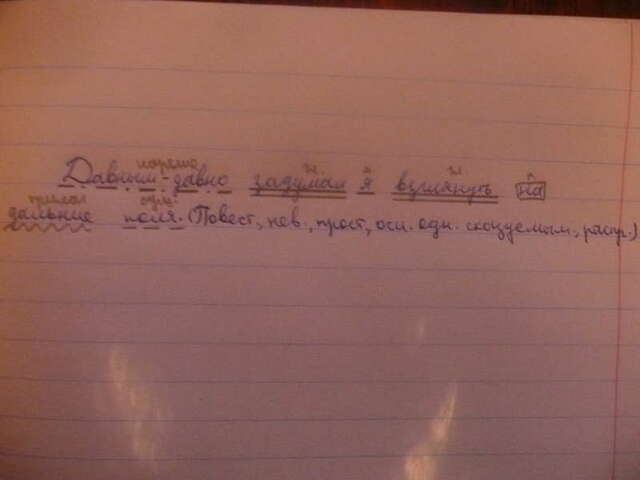 нареч.
Давным-давно задумал я взглянуть на
прилаг. сущ.
дальние поля. (Повест., нев., прост., осл. одн. сказуемым, распр.)